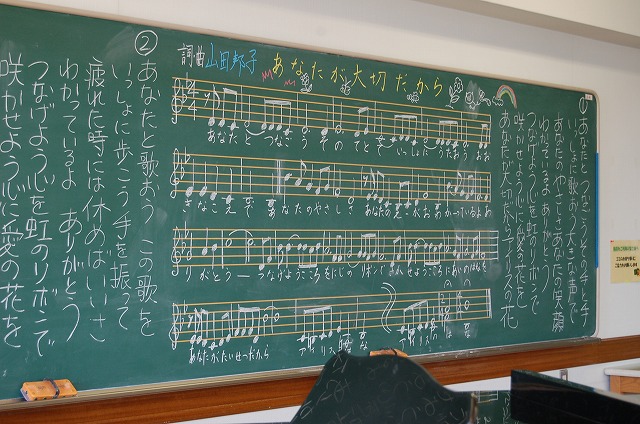 あなたが大切だから
詞・曲 山田邦子
あなたと つなごうその手と手
いっしょに歌おう大きな声で
あなたのやさしさあなたの笑顔
わかっているよ ありがとう
つなげよう心を虹のリボンで
咲かせよう心に愛の花を
あなたが大切だから
あなたと つなごう その てとて いっしょに うたおう おお
きなこえで あなたのやさしさ あなたのえがお わかっているよ あ
りがとう つなげようこころをにじのリボンで さかせようこころにあいのはなを
あなたがたいせつだから
②
あなたと歌おう この歌を
いっしょに歩こう 手を振って
疲れた時には休めばいいさ
わかっているよ ありがとう
つなげよう心を虹のリボンで
咲かせよう心に愛の花を